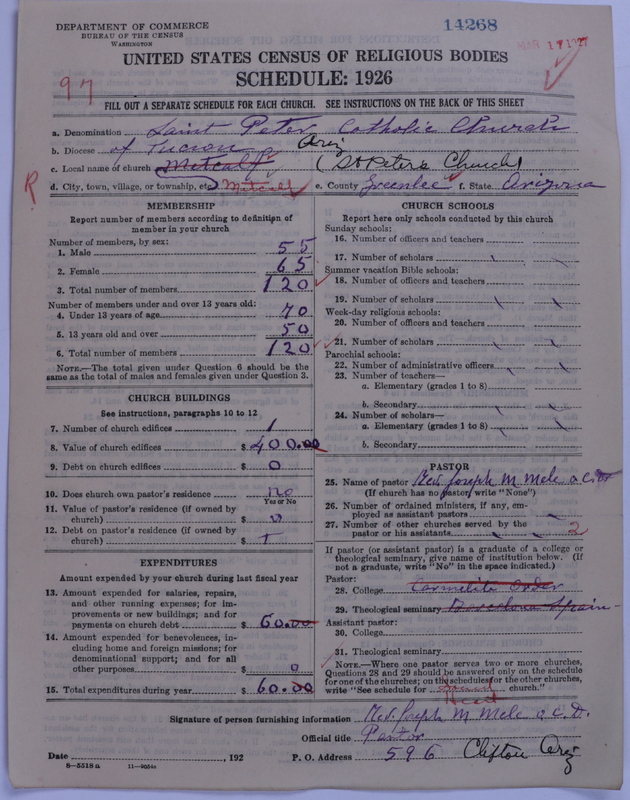 DEPARTMENT OF COMMERCE
BUREAU OF THE CENSUS
WASHINGTON
14268
MAR 17 1927
UNITED STATES CENSUS OF RELIGIOUS BODIES
SCHEDULE: 1926
97
FILL OUT A SEPARATE SCHEDULE FOR EACH CHURCH. SEE INSTRUCTIONS ON THE BACK OF THIS SHEET
a. Denomination Saint Peter Catholic Church
b. Diocese of Tucson Ariz
c. Local name of church Metcalf (St Peters Church)
R
d. City, town, village, or township, etc. Metcalf e. County Greenlee f. State Arizona
MEMBERSHIP
Report number of members according to definition of member in your church
Number of members, by sex:
1. Male 55
2. Female 65
3. Total number of members 120
Number of members under and over 13 years old:
4. Under 13 years of age 70
5. 13 years old and over 50
6. Total number of members 120
NOTE.—The total given under Question 6 should be the same as the total of males and females given under Question 3.
CHURCH BUILDINGS
See instructions, paragraphs 10 to 12
7. Number of church edifices 1
8. Value of church edifices $ 400.00
9. Debt on church edifices $ 0
10. Does church own pastor's residence no
Yes or No
11. Value of pastor's residence (if owned by church) $ 0
12. Debt on pastor's residence (if owned by church) $
EXPENDITURES
Amount expended by your church during last fiscal year
13. Amount expended for salaries, repairs, and other running expenses; for improvements or new buildings; and for payments on church debt $ 60.00
14. Amount expended for benevolences, including home and foreign missions; for denominational support; and for all other purposes $ 0
15. Total expenditures during year $ 60.00
CHURCH SCHOOLS
Report here only schools conducted by this church
Sunday schools:
16. Number of officers and teachers
17. Number of scholars
Summer vacation Bible schools:
18. Number of officers and teachers
19. Number of scholars
Week-day religious schools:
20. Number of officers and teachers
21. Number of scholars
Parochial schools:
22. Number of administrative officers
23. Number of teachers—
a. Elementary (grades 1 to 8)
b. Secondary
24. Number of scholars—
a. Elementary (grades 1 to 8)
b. Secondary
PASTOR
25. Name of pastor Rev. Joseph M Mele o.c.D.
(If church has no pastor, write "None")
26. Number of ordained ministers, if any, employed as assistant pastors
27. Number of other churches served by the pastor or his assistants 2
If pastor (or assistant pastor) is a graduate of a college or theological seminary, give name of institution below. (If not a graduate, write "No" in the space indicated.)
Pastor:
28. College Carmelite Order
29. Theological seminary Barcelona Spain
Assistant pastor:
30. College
31. Theological seminary
NOTE.—Where one pastor serves two or more churches, Questions 28 and 29 should be answered only on the schedule for one of the churches; on the schedules for the other churches, write "See schedule for Sacred Heart church."
Signature of person furnishing information Rev. Joseph M Mele o.c.D.
Official title Pastor
Date , 192 P. O. Address 596 Clifton Ariz
8—5318 a 11—9684a